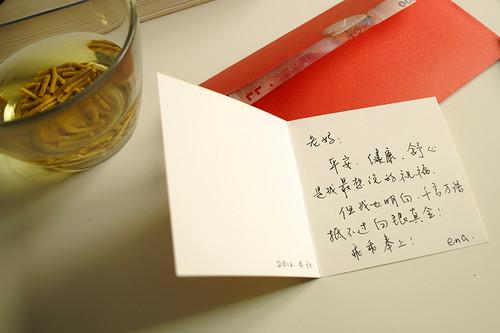 老妈：
平安、健康、舒心
是我最想说的祝福.
但我也明白，千言万语
抵不过白银真金！
乖乖奉上！
ena.
2012.
00